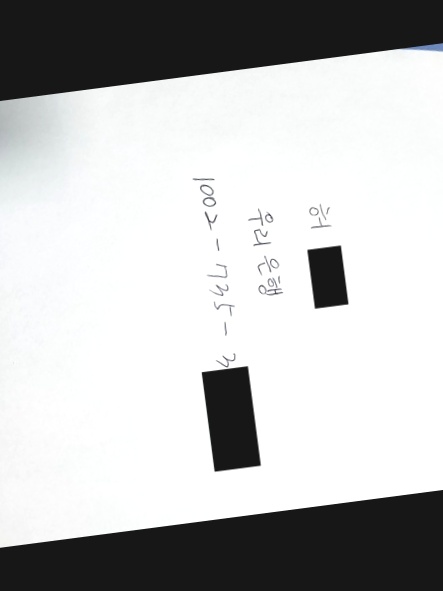 허
우리 은행
1002-735-3